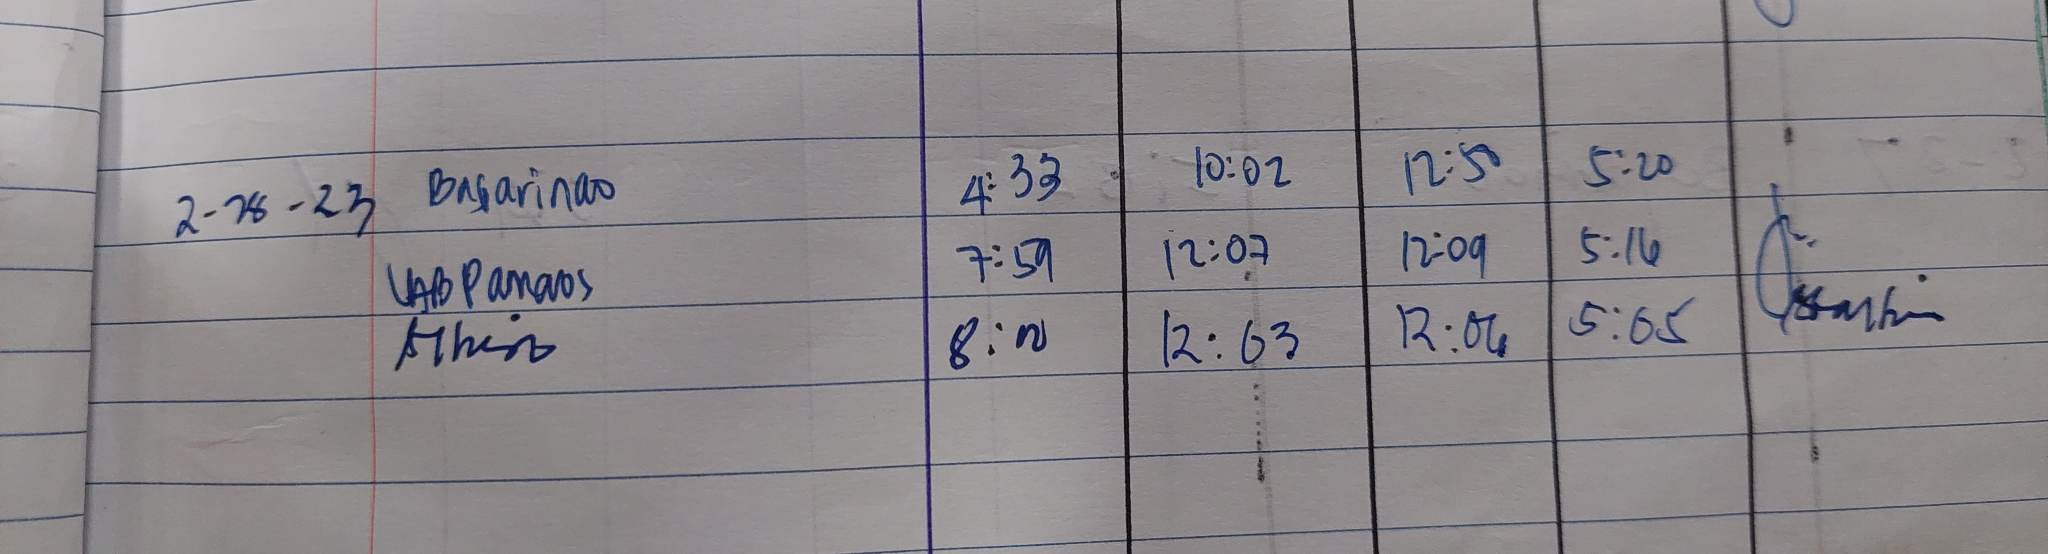 2-28-23 Basarinao 4:33 10:02 12:50 5:20
Pamaos 7:59 12:07 12:09 5:16
8: 12:03 12:06 5:05